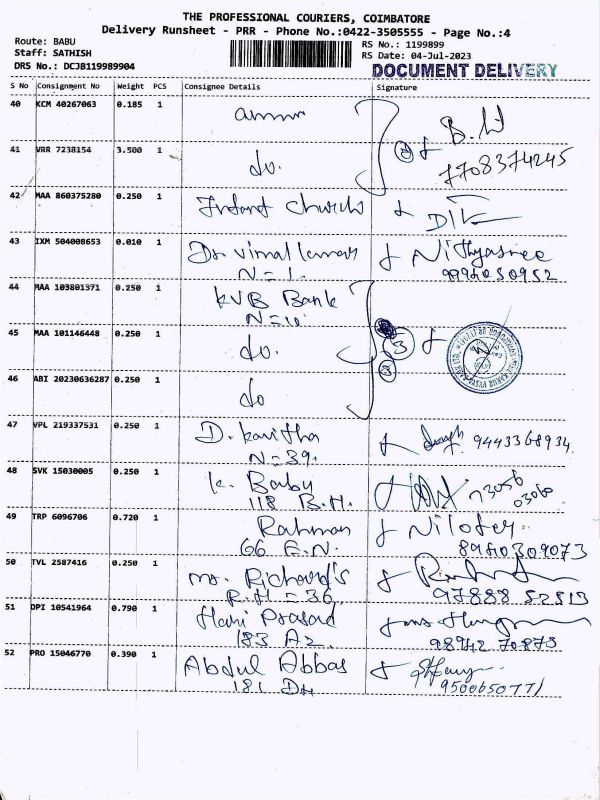 THE PROFESSIONAL COURIERS, COIMBATORE
Delivery Runsheet - PRR - Phone No.:0422-3505555 - Page No.:4
Route: BABU
Staff: SATHISH
DRS No.: DCJB119989904
RS No.: 1199899
RS Date: 04-Jul-2023
DOCUMENT DELIVERY
S No Consignment No Weight PCS Consignee Details Signature
40 KCM 40267063 0.185 1
41 VRR 7238154 3.500 1 do.
7708374245
42 MAA 860375280 0.250 1 Infant Church
43 IXM 504008653 0.010 1 Dr. Vimal Nithyasree
N=1.
44 MAA 103801371 0.250 1 KVB Bank
45 MAA 101146448 0.250 1 do. 3
46 ABI 20230636287 0.250 1 do
47 VPL 219337531 0.250 1 D. Kavitha 9443368934
N=39.
48 SVK 15030005 0.250 1 K. Baby 73056
118 B.H. 03060
49 TRP 6096706 0.720 1 Rahman Nilofer
66 E.N. 8940309073
50 TVL 2587416 0.250 1 Mr. Richard's
R.H=36 97888 52513
51 DPI 10541964 0.790 1 Hari Prasad
183 A2 98942 70873
52 PRO 15046770 0.390 1 Abdul Abbas
181 DH 9500650771